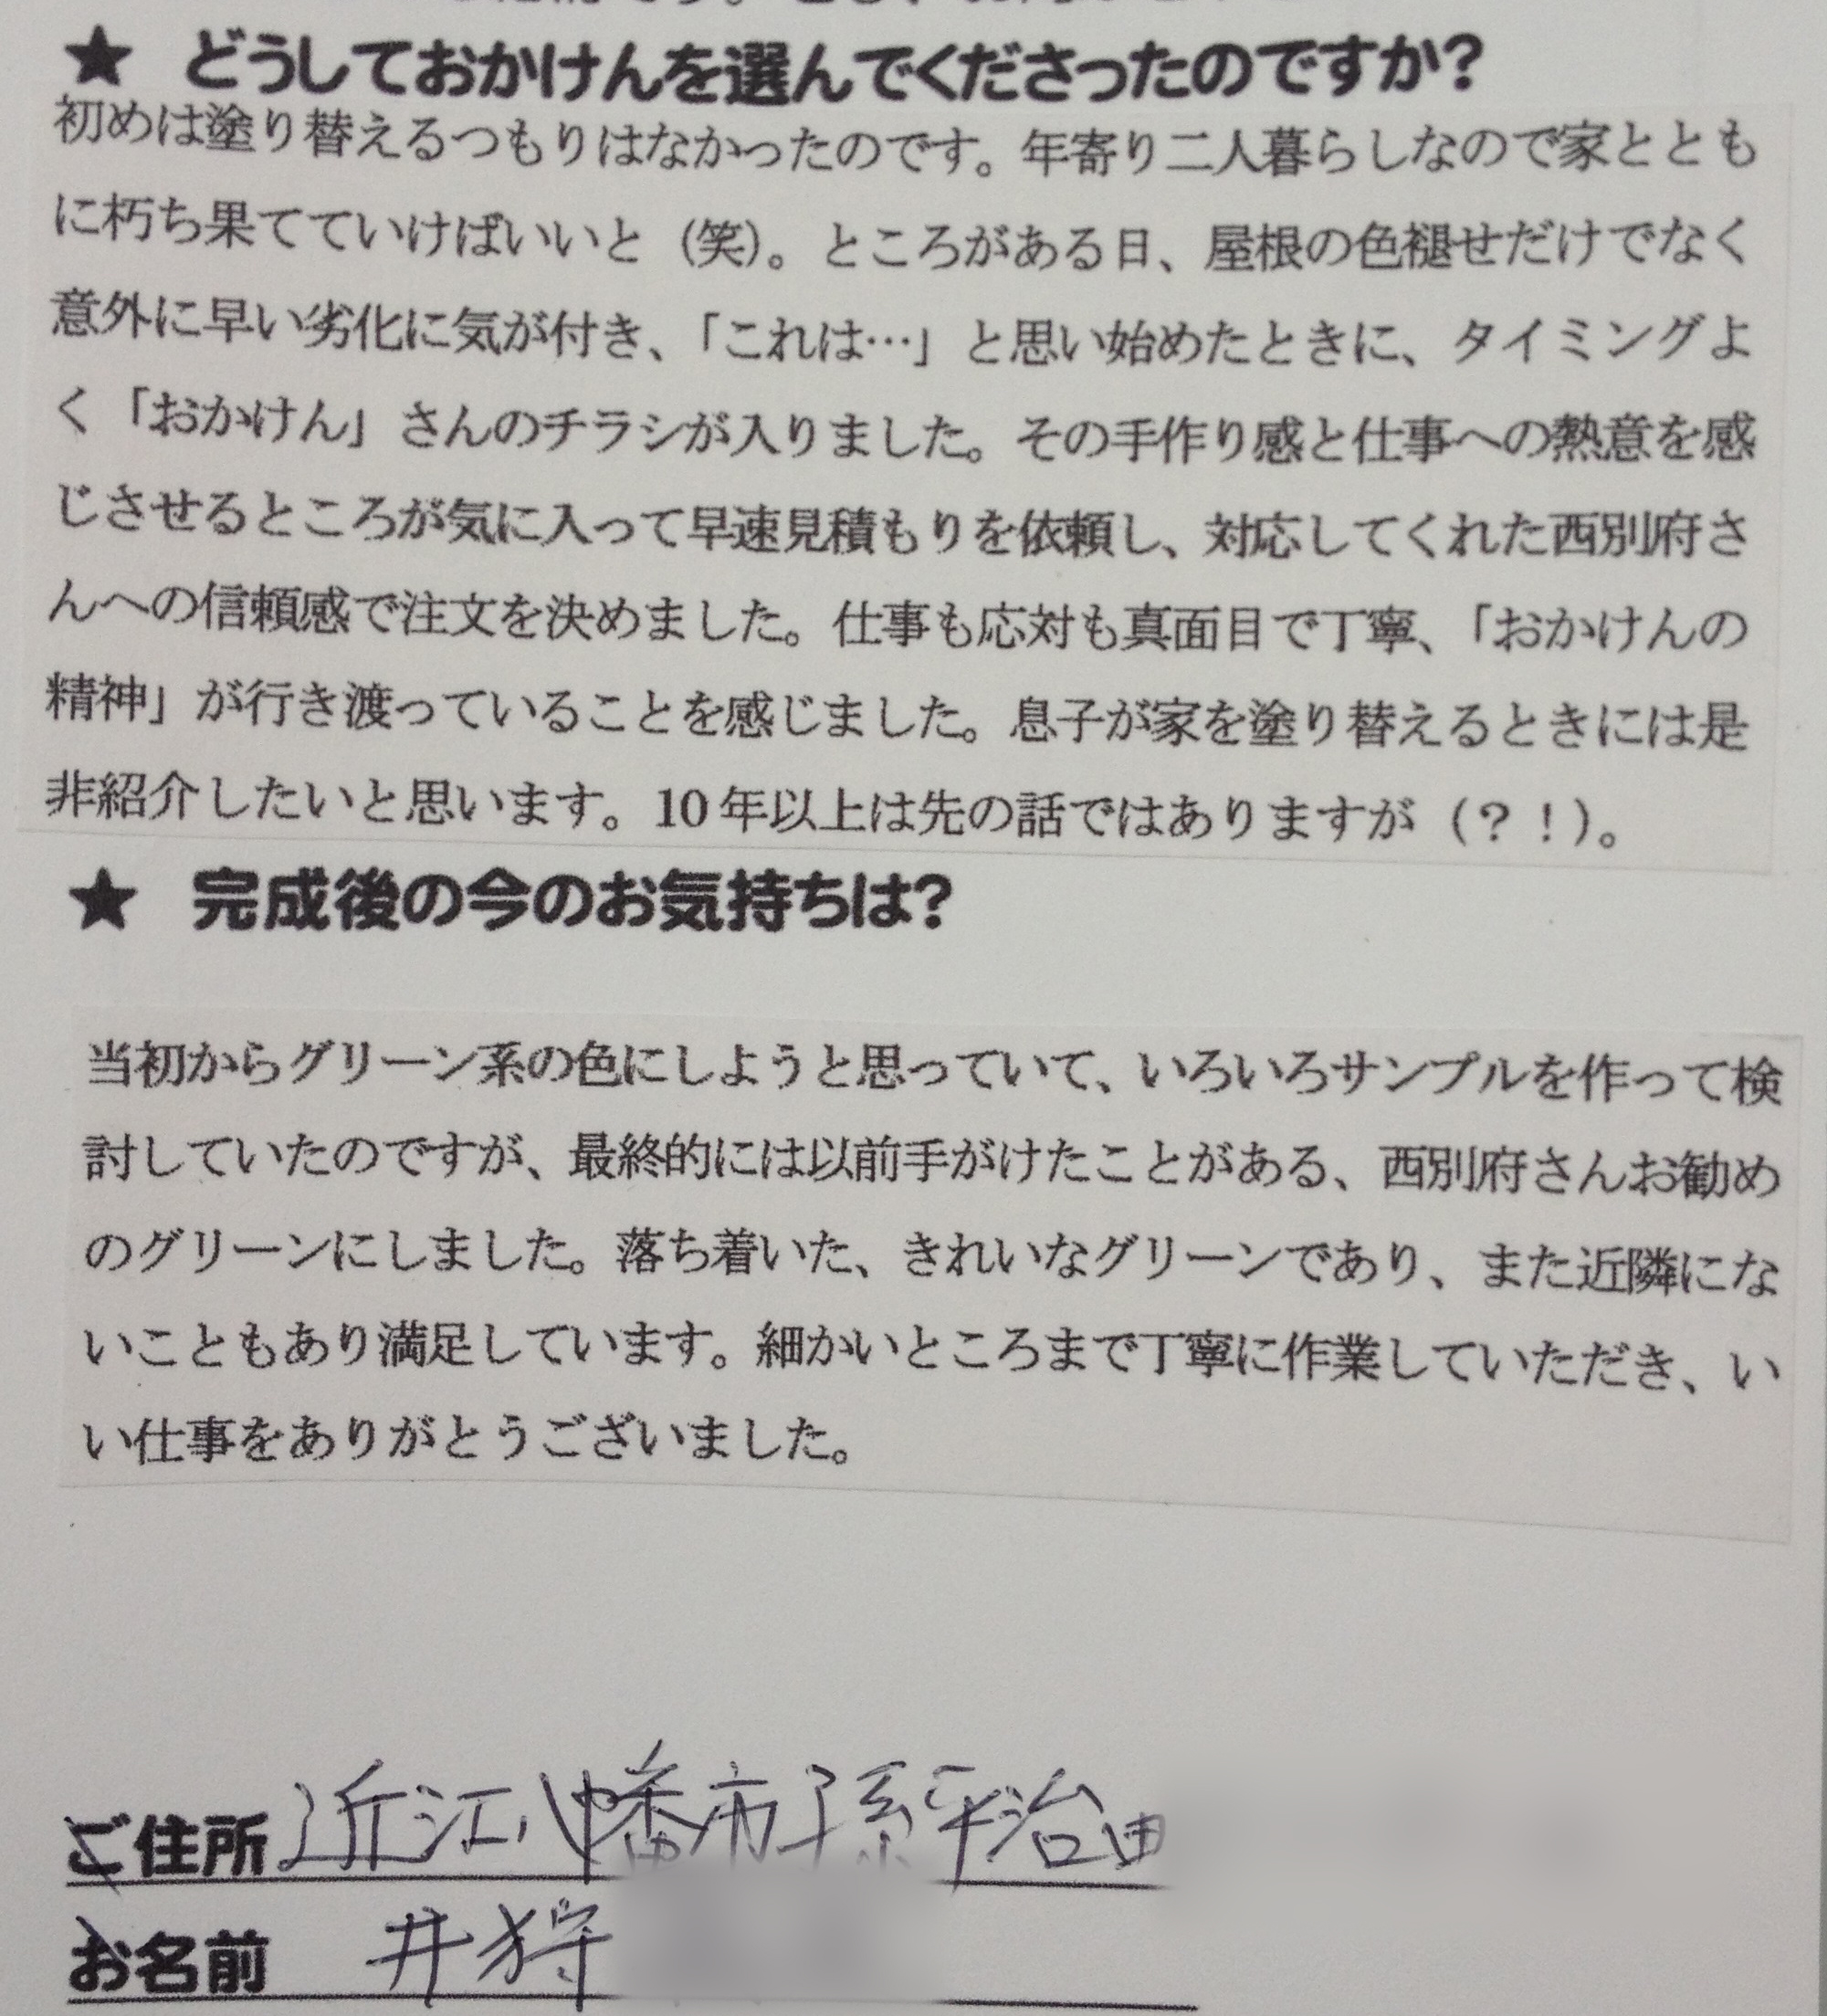 ★ どうしておかけんを選んでくださったのですか?
初めは塗り替えるつもりはなかったのです。年寄り二人暮らしなので家ととも
に朽ち果てていけばいいと（笑）。ところがある日、屋根の色褪せだけでなく
意外に早い劣化に気が付き、「これは…」と思い始めたときに、タイミングよ
く「おかけん」さんのチラシが入りました。その手作り感と仕事への熱意を感
じさせるところが気に入って早速見積もりを依頼し、対応してくれた西別府さ
んへの信頼感で注文を決めました。仕事も応対も真面目で丁寧、「おかけんの
精神」が行き渡っていることを感じました。息子が家を塗り替えるときには是
非紹介したいと思います。10 年以上は先の話ではありますが（？！）。
★ 完成後の今のお気持ちは?
当初からグリーン系の色にしようと思っていて、いろいろサンプルを作って検
討していたのですが、最終的には以前手がけたことがある、西別府さんお勧め
のグリーンにしました。落ち着いた、きれいなグリーンであり、また近隣にな
いこともあり満足しています。細かいところまで丁寧に作業していただき、い
い仕事をありがとうございました。
ご住所 近江八幡市孫平治
お名前 井狩